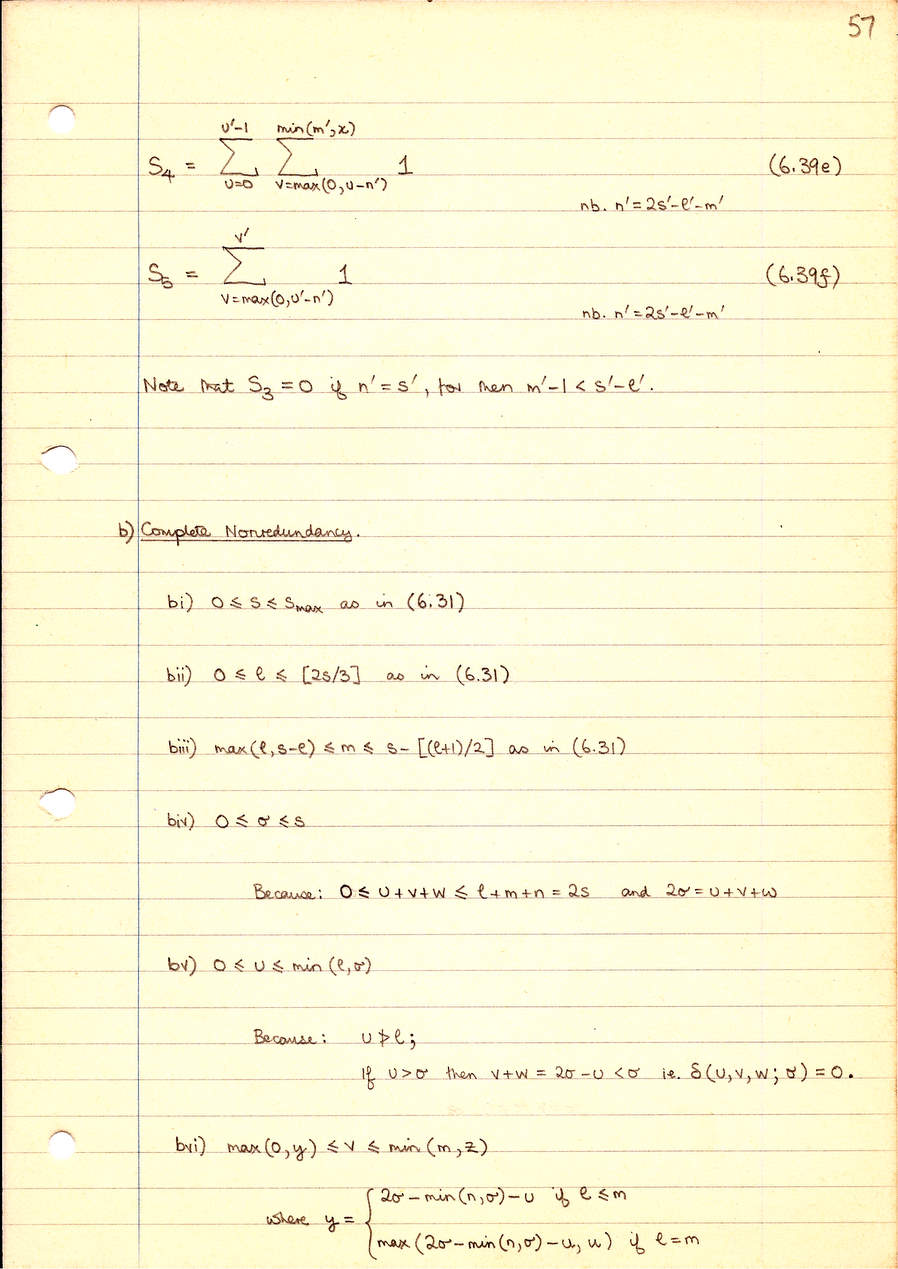 57
S₄ = Σ_{u=0}^{u'-1} Σ_{v=max(0,u-n')}^{min(m',x)} 1 (6.39e)
nb. n' = 2s'-ℓ'-m'
S₅ = Σ_{v=max(0,u'-n')}^{v'} 1 (6.39f)
nb. n' = 2s'-ℓ'-m'
Note that S₃ = 0 if n' = s', for then m'-1 < s'-ℓ'.
b) Complete Nonredundancy.
bi) 0 ⩽ s ⩽ s_max as in (6.31)
bii) 0 ⩽ ℓ ⩽ [2s/3] as in (6.31)
biii) max(ℓ, s-ℓ) ⩽ m ⩽ s-[(ℓ+1)/2] as in (6.31)
biv) 0 ⩽ σ ⩽ s
Because: 0 ⩽ u+v+w ⩽ ℓ+m+n = 2s and 2σ = u+v+w
bv) 0 ⩽ u ⩽ min(ℓ,σ)
Because: u ≯ ℓ;
If u>σ then v+w = 2σ-u <σ ie. δ(u,v,w;σ) = 0.
bvi) max(0,y) ⩽ v ⩽ min(m,z)
where y = { 2σ-min(n,σ)-u if ℓ ⩽ m
max(2σ-min(n,σ)-u, u) if ℓ=m